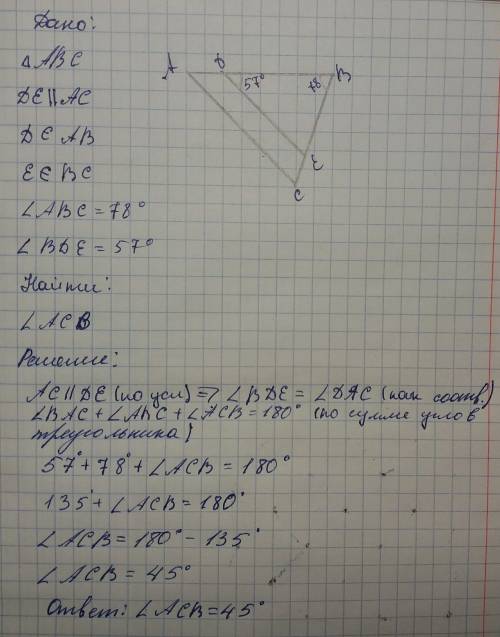 Дано:
△ABC
DE||AC
D∈AB
E∈BC
∠ABC = 78°
∠BDE = 57°
A D B
57° 78
E
C
Найти:
∠ACB
Решение:
AC||DE (по усл) ⇒ ∠BDE = ∠DAC (как соотв.)
∠BAC + ∠ABC + ∠ACB = 180° (по сумме углов
треугольника)
57° + 78° + ∠ACB = 180°
135° + ∠ACB = 180°
∠ACB = 180° - 135°
∠ACB = 45°
Ответ: ∠ACB = 45°